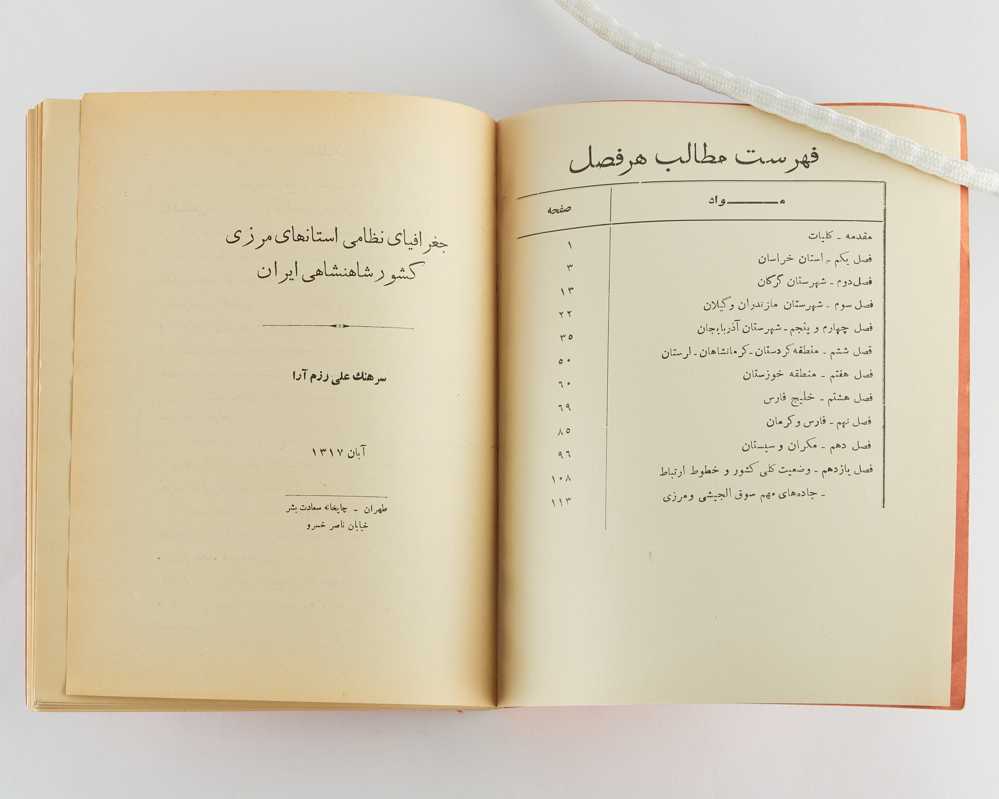 فهرست مطالب هرفصل
مـــــواد صفحه
مقدمه ـ کلیات ۱
فصل یکم ـ استان خراسان ۳
فصل دوم ـ شهرستان گرگان ۱۳
فصل سوم ـ شهرستان مازندران وگیلان ۲۲
فصل چهارم و پنجم ـ شهرستان آذربایجان ۳۵
فصل ششم ـ منطقه کردستان ـ کرمانشاهان ـ لرستان ۵۰
فصل هفتم ـ منطقه خوزستان ۶۰
فصل هشتم ـ خلیج فارس ۶۹
فصل نهم ـ فارس وکرمان ۸۵
فصل دهم ـ مکران و سیستان ۹۶
فصل یازدهم ـ وضعیت کلی کشور و خطوط ارتباط ۱۰۸
ـ جاده‌های مهم سوق الجیشی ومرزی ۱۱۳
جغرافیای نظامی استانهای مرزی
کشور شاهنشاهی ایران
سرهنك علی رزم آرا
آبان ۱۳۱۷
طهران ـ چاپخانه سعادت بشر
خیابان ناصر خسرو